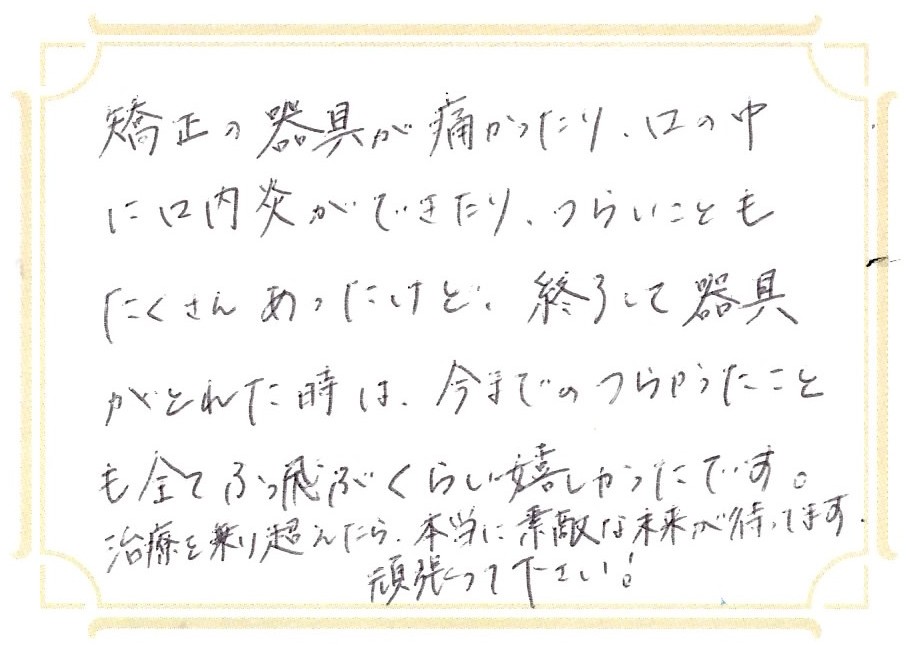 矯正の器具が痛かったり、口の中
に口内炎ができたり、つらいことも
たくさんあったけど、終了して器具
がとれた時は、今までのつらかったこと
も全てふっ飛ぶくらい嬉しかったです。
治療を乗り超えたら、本当に素敵な未来が待ってます。
頑張って下さい!